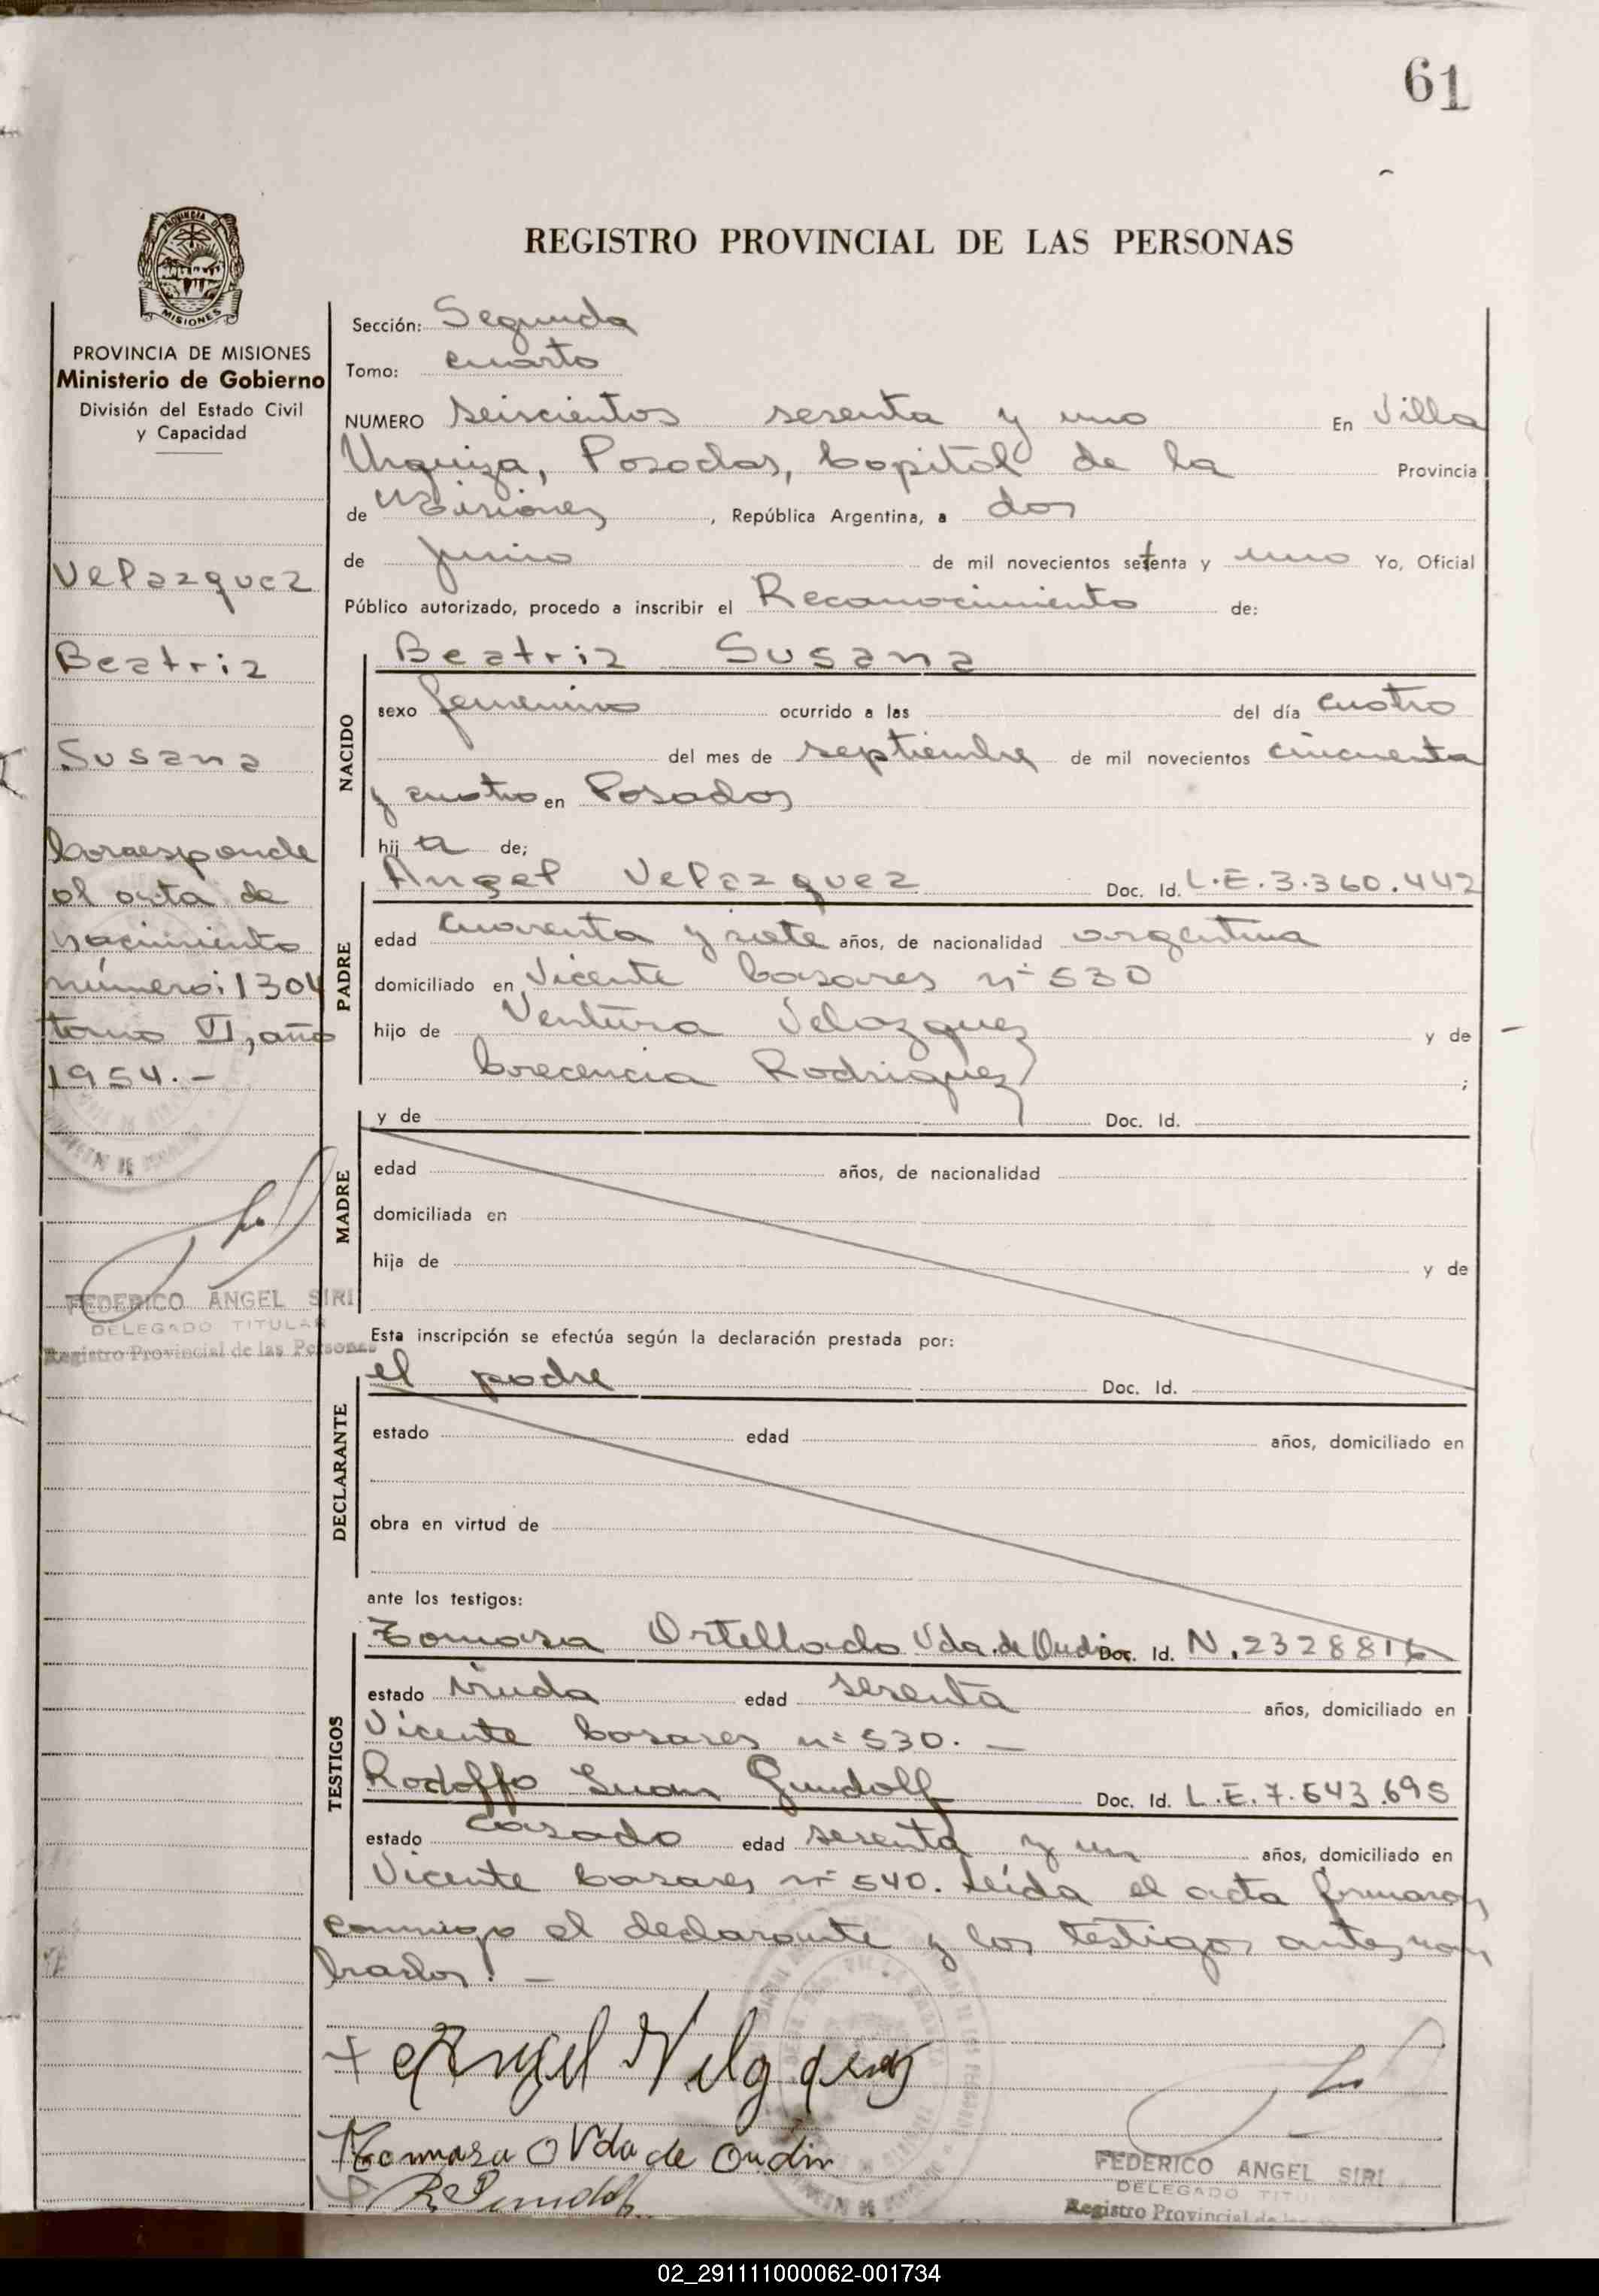 61
REGISTRO PROVINCIAL DE LAS PERSONAS
MISIONES
PROVINCIA DE MISIONES
Ministerio de Gobierno
División del Estado Civil
y Capacidad
Velazquez
Beatriz
Susana
Corresponde
al acta de
nacimiento
número: 1304
tomo VI, año
1954.-
FEDERICO ANGEL SIRI
DELEGADO TITULAR
Registro Provincial de las Personas
Sección: Segunda
Tomo: cuarto
NUMERO seiscientos sesenta y uno En Villa
Urquiza, Posadas, Capital de la Provincia
de Misiones, República Argentina, a dos
de junio de mil novecientos setenta y uno Yo, Oficial
Público autorizado, procedo a inscribir el Reconocimiento de:
NACIDO
Beatriz Susana
sexo femenino ocurrido a las del día cuatro
del mes de septiembre de mil novecientos cincuenta
y cuatro en Posadas
hija de;
PADRE
Angel Velazquez Doc. Id. L.E.3.360.442
edad cuarenta y siete años, de nacionalidad argentina
domiciliado en Vicente Casares nº 530
hijo de Ventura Velazquez y de
Crecencia Rodriguez ;
MADRE
y de Doc. Id.
edad años, de nacionalidad
domiciliada en
hija de y de
Esta inscripción se efectúa según la declaración prestada por:
DECLARANTE
el padre Doc. Id.
estado edad años, domiciliado en
obra en virtud de
ante los testigos:
TESTIGOS
Tomasa Ortellado Vda. de Oudin Doc. Id. N.2328816
estado viuda edad sesenta años, domiciliado en
Vicente Casares nº 530. -
Rodolfo Juan Gundolf Doc. Id. L.E.7.543.695
estado casado edad sesenta y un años, domiciliado en
Vicente Casares nº 540. Leída el acta firmaron
conmigo el declarante y los testigos antes nom
brados. -
Angel Velazquez
Tomasa O Vda de Oudin
FEDERICO ANGEL SIRI
DELEGADO TITU
Registro Provincial de
02_291111000062-001734